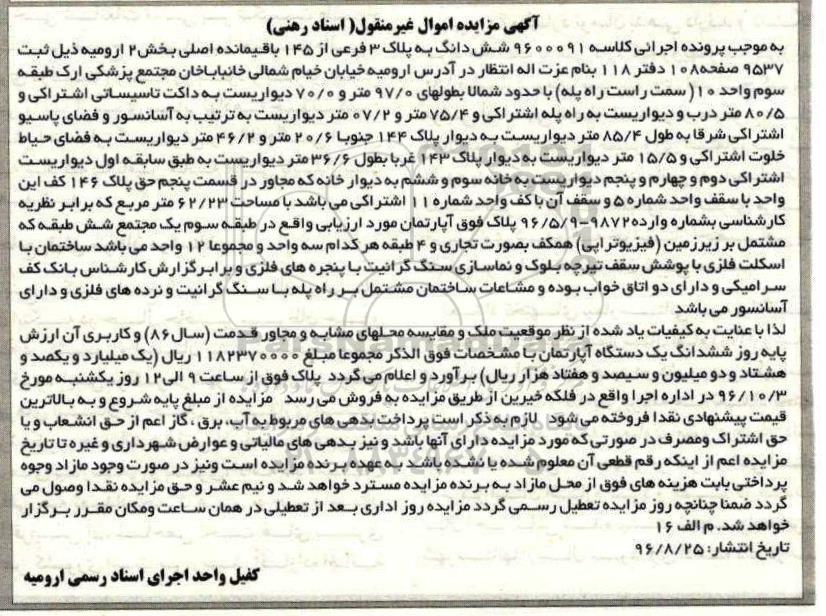 آگهی مزایده اموال غیرمنقول( اسناد رهنی)
به موجب پرونده اجرائی کلاسه ۹۶۰۰۰۹۱ شش دانگ به پلاک ۳ فرعی از ۱۴۵ باقیمانده اصلی بخش۲ ارومیه ذیل ثبت
۹۵۳۷ صفحه۱۰۸ دفتر ۱۱۸ بنام عزت اله انتظار در آدرس ارومیه خیابان خیام شمالی خانباباخان مجتمع پزشکی ارک طبقه
سوم واحد ۱۰( سمت راست راه پله) با حدود شمالا بطولهای ۹۷/۰ متر و ۷۰/۰ دیواریست به داکت تاسیساتی اشتراکی و
۸۰/۵ متر درب و دیواریست به راه پله اشتراکی و ۷۵/۴ متر و ۰۷/۲ متر دیواریست به ترتیب به آسانسور و فضای پاسیو
اشتراکی شرقا به طول ۸۵/۴ متر دیواریست به دیوار پلاک ۱۴۴ جنوبا ۲۰/۶ متر و ۴۶/۲ متر دیواریست به فضای حیاط
خلوت اشتراکی و ۱۵/۵ متر دیواریست به دیوار پلاک ۱۴۳ غربا بطول ۳۶/۶ متر دیواریست به طبق سابقه اول دیواریست
اشتراکی دوم و چهارم و پنجم دیواریست به خانه سوم و ششم به دیوار خانه که مجاور در قسمت پنجم حق پلاک ۱۴۶ کف این
واحد با سقف واحد شماره ۵ و سقف آن با کف واحد شماره ۱۱ اشتراکی می باشد با مساحت ۶۲/۲۳ متر مربع که برابر نظریه
کارشناسی بشماره وارده ۹۸۷۲-۹۶/۵/۹ پلاک فوق آپارتمان مورد ارزیابی واقع در طبقه سوم یک مجتمع شش طبقه که
مشتمل بر زیرزمین (فیزیوتراپی) همکف بصورت تجاری و ۴ طبقه هر کدام سه واحد و مجموعا ۱۲ واحد می باشد ساختمان با
اسکلت فلزی با پوشش سقف تیرچه بلوک و نماسازی سنگ گرانیت با پنجره های فلزی و برابر گزارش کارشناس بانک کف
سرامیکی و دارای دو اتاق خواب بوده و مشاعات ساختمان مشتمل بر راه پله با سنگ گرانیت و نرده های فلزی و دارای
آسانسور می باشد
لذا با عنایت به کیفیات یاد شده از نظر موقعیت ملک و مقایسه محلهای مشابه و مجاور قدمت (سال۸۶) و کاربری آن ارزش
پایه روز ششدانگ یک دستگاه آپارتمان با مشخصات فوق الذکر مجموعا مبلغ ۱۱۸۲۳۷۰۰۰۰ ریال (یک میلیارد و یکصد و
هشتاد و دو میلیون و سیصد و هفتاد هزار ریال) برآورد و اعلام می گردد پلاک فوق از ساعت ۹ الی۱۲ روز یکشنبه مورخ
۹۶/۱۰/۳ در اداره اجرا واقع در فلکه خیرین از طریق مزایده به فروش می رسد  مزایده از مبلغ پایه شروع و به بالاترین
قیمت پیشنهادی نقدا فروخته می شود  لازم به ذکر است پرداخت بدهی های مربوط به آب، برق ، گاز اعم از حق انشعاب و یا
حق اشتراک ومصرف در صورتی که مورد مزایده دارای آنها باشد و نیز بدهی های مالیاتی و عوارض شهرداری و غیره تا تاریخ
مزایده اعم از اینکه رقم قطعی آن معلوم شده یا نشده باشد به عهده برنده مزایده است ونیز در صورت وجود مازاد وجوه
پرداختی بابت هزینه های فوق از محل مازاد به برنده مزایده مسترد خواهد شد و نیم عشر و حق مزایده نقدا وصول می
گردد ضمنا چنانچه روز مزایده تعطیل رسمی گردد مزایده روز اداری بعد از تعطیلی در همان ساعت ومکان مقرر برگزار
خواهد شد. م الف ۱۶
تاریخ انتشار: ۹۶/۸/۲۵
کفیل واحد اجرای اسناد رسمی ارومیه